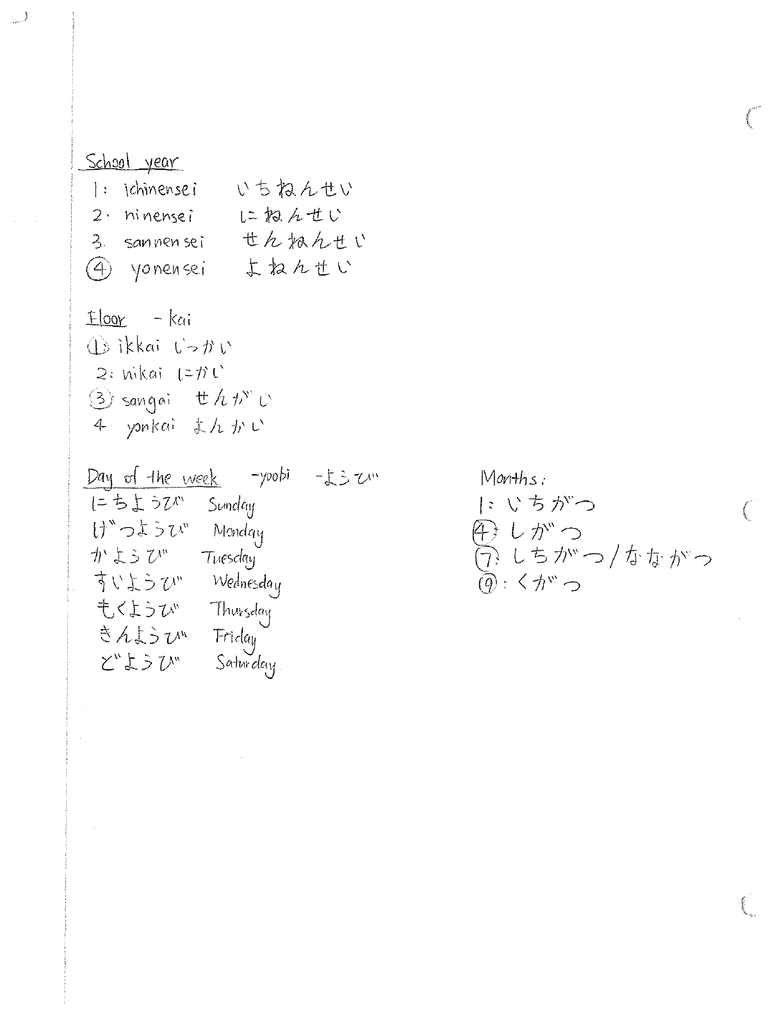 School year
1: ichinensei いちねんせい
2: ninensei にねんせい
3. sannensei せんねんせい
④ yonensei よねんせい
Floor - kai
①: ikkai じっかい
2: nikai にかい
③: sangai せんがい
4 yonkai よんかい
Day of the week -yoobi -ようび
にちようび Sunday
げつようび Monday
かようび Tuesday
すいようび Wednesday
もくようび Thursday
きんようび Friday
どようび Saturday
Months:
1: いちがつ
④: しがつ
⑦: しちがつ/なながつ
⑨: くがつ